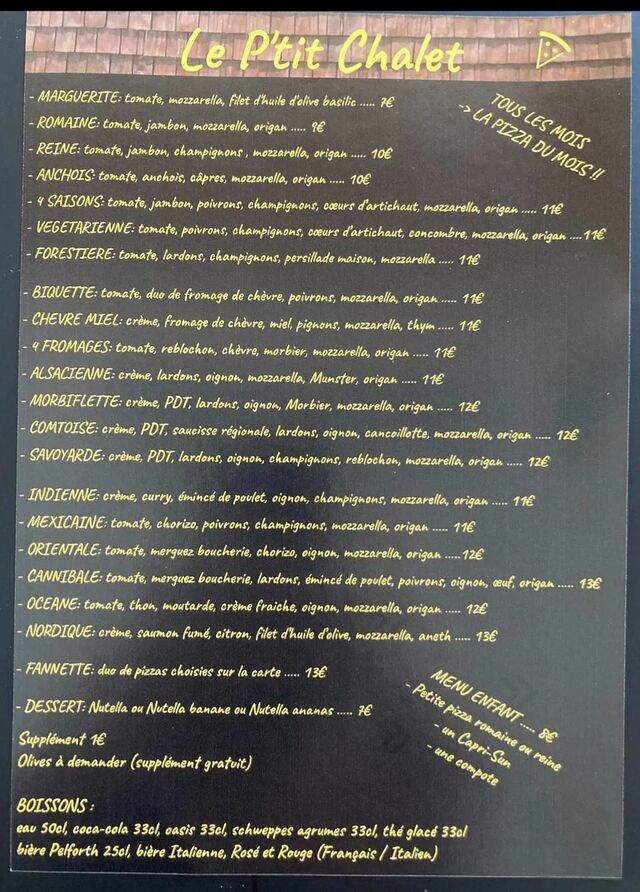 Le P'tit Chalet
TOUS LES MOIS
-> LA PIZZA DU MOIS !!
- MARGUERITE: tomate, mozzarella, filet d'huile d'olive basilic ..... 7€
- ROMAINE: tomate, jambon, mozzarella, origan ..... 9€
- REINE: tomate, jambon, champignons , mozzarella, origan ..... 10€
- ANCHOIS: tomate, anchois, câpres, mozzarella, origan ..... 10€
- 4 SAISONS: tomate, jambon, poivrons, champignons, cœurs d'artichaut, mozzarella, origan ..... 11€
- VEGETARIENNE: tomate, poivrons, champignons, cœurs d'artichaut, concombre, mozzarella, origan ....11€
- FORESTIERE: tomate, lardons, champignons, persillade maison, mozzarella ..... 11€
- BIQUETTE: tomate, duo de fromage de chèvre, poivrons, mozzarella, origan ..... 11€
- CHEVRE MIEL: crème, fromage de chèvre, miel, pignons, mozzarella, thym ..... 11€
- 4 FROMAGES: tomate, reblochon, chèvre, morbier, mozzarella, origan ..... 11€
- ALSACIENNE: crème, lardons, oignon, mozzarella, Munster, origan ..... 11€
- MORBIFLETTE: crème, PDT, lardons, oignon, Morbier, mozzarella, origan ..... 12€
- COMTOISE: crème, PDT, saucisse régionale, lardons, oignon, cancoillotte, mozzarella, origan ..... 12€
- SAVOYARDE: crème, PDT, lardons, oignon, champignons, reblochon, mozzarella, origan ..... 12€
- INDIENNE: crème, curry, émincé de poulet, oignon, champignons, mozzarella, origan ..... 11€
- MEXICAINE: tomate, chorizo, poivrons, champignons, mozzarella, origan ..... 11€
- ORIENTALE: tomate, merguez boucherie, chorizo, oignon, mozzarella, origan .....12€
- CANNIBALE: tomate, merguez boucherie, lardons, émincé de poulet, poivrons, oignon, œuf, origan ..... 13€
- OCEANE: tomate, thon, moutarde, crème fraiche, oignon, mozzarella, origan ..... 12€
- NORDIQUE: crème, saumon fumé, citron, filet d'huile d'olive, mozzarella, aneth ..... 13€
- FANNETTE: duo de pizzas choisies sur la carte ..... 13€
- DESSERT: Nutella ou Nutella banane ou Nutella ananas ..... 7€
MENU ENFANT ..... 8€
- Petite pizza romaine ou reine
- un Capri-Sun
- une compote
Supplément 1€
Olives à demander (supplément gratuit)
BOISSONS :
eau 50cl, coca-cola 33cl, oasis 33cl, schweppes agrumes 33cl, thé glacé 33cl
bière Pelforth 25cl, bière Italienne, Rosé et Rouge (Français / Italien)